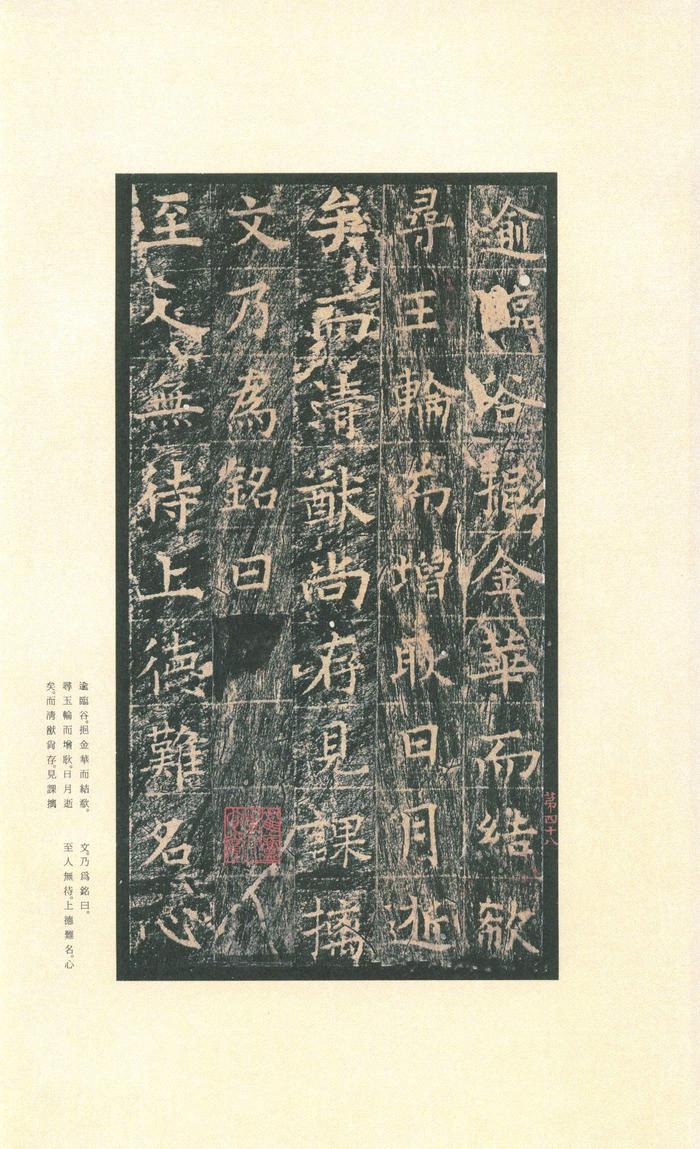 逾臨谷挹金華而結欷
尋玉輪而增耿日月逝
矣而清猷尚存見課摛
文乃為銘曰
至人無待上德難名心
第四十八
逾臨谷。挹金華而結欷。
尋玉輪而增耿。日月逝
矣。而清猷尙存。見課摛
文。乃爲銘曰。
至人無待。上德難名。心